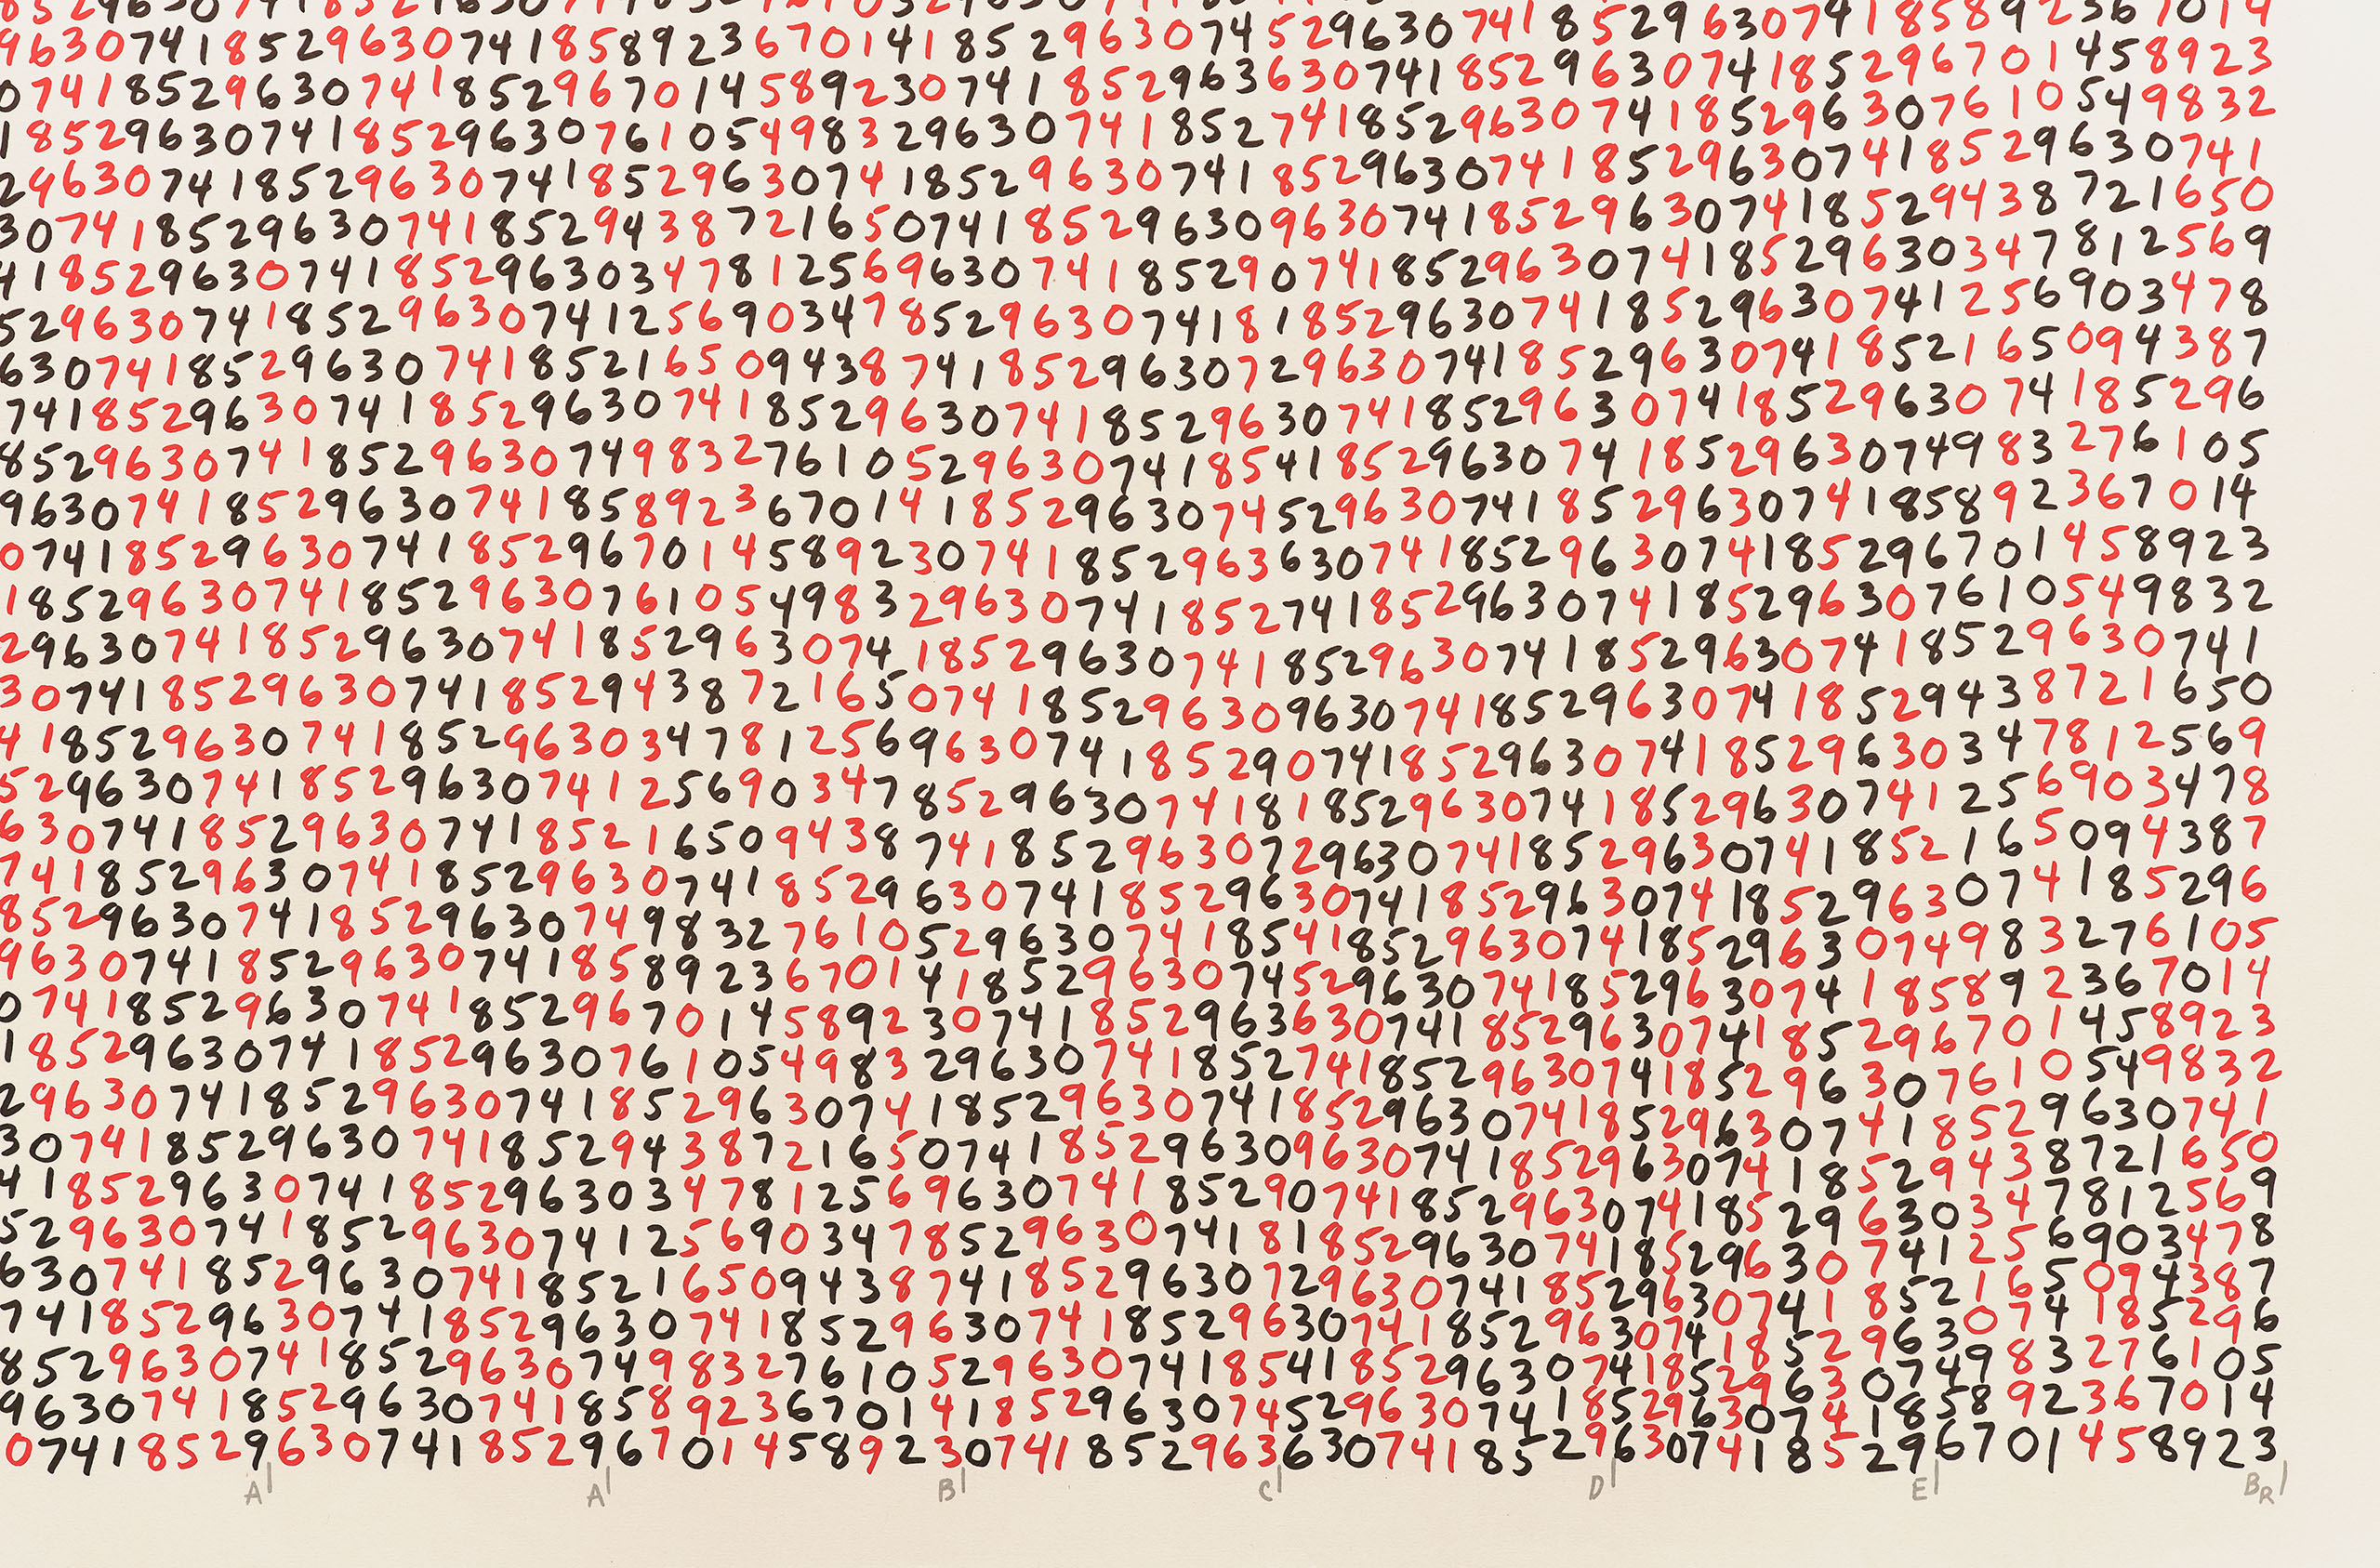 96307418529630741858923670141852963074529630741852963074185892367014
07418529630741852967014589230741852963630741852963074185296701458923
18529630741852963076105498329630741852741852963074185296307610549832
29630741852963074185296307418529630741852963074185296307418529630741
30741852963074185294387216507418529630963074185296307418529438721650
41852963074185296303478125696307418529074185296307418529630347812569
52963074185296307412569034785296307418185296307418529630741256903478
63074185296307418521650943874185296307296307418529630741852165094387
74185296307418529630741852963074185296307418529630741852963074185296
85296307418529630749832761052963074185418529630741852963074983276105
96307418529630741858923670141852963074529630741852963074185892367014
07418529630741852967014589230741852963630741852963074185296701458923
18529630741852963076105498329630741852741852963074185296307610549832
29630741852963074185296307418529630741852963074185296307418529630741
30741852963074185294387216507418529630963074185296307418529438721650
41852963074185296303478125696307418529074185296307418529630347812569
52963074185296307412569034785296307418185296307418529630741256903478
63074185296307418521650943874185296307296307418529630741852165094387
74185296307418529630741852963074185296307418529630741852963074185296
85296307418529630749832761052963074185418529630741852963074983276105
96307418529630741858923670141852963074529630741852963074185892367014
07418529630741852967014589230741852963630741852963074185296701458923
18529630741852963076105498329630741852741852963074185296307610549832
29630741852963074185296307418529630741852963074185296307418529630741
30741852963074185294387216507418529630963074185296307418529438721650
41852963074185296303478125696307418529074185296307418529630347812569
52963074185296307412569034785296307418185296307418529630741256903478
63074185296307418521650943874185296307296307418529630741852165094387
74185296307418529630741852963074185296307418529630741852963074185296
85296307418529630749832761052963074185418529630741852963074983276105
96307418529630741858923670141852963074529630741852963074185892367014
07418529630741852967014589230741852963630741852963074185296701458923
A A B C D E BR